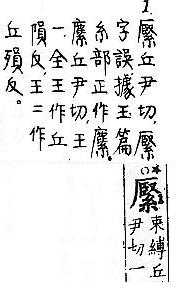 1.
丘尹切,
字誤據玉篇
糸部正作
丘尹切,王
一、全王作丘
隕反,王二作
丘殞反。
○*
束縛丘
尹切一
2